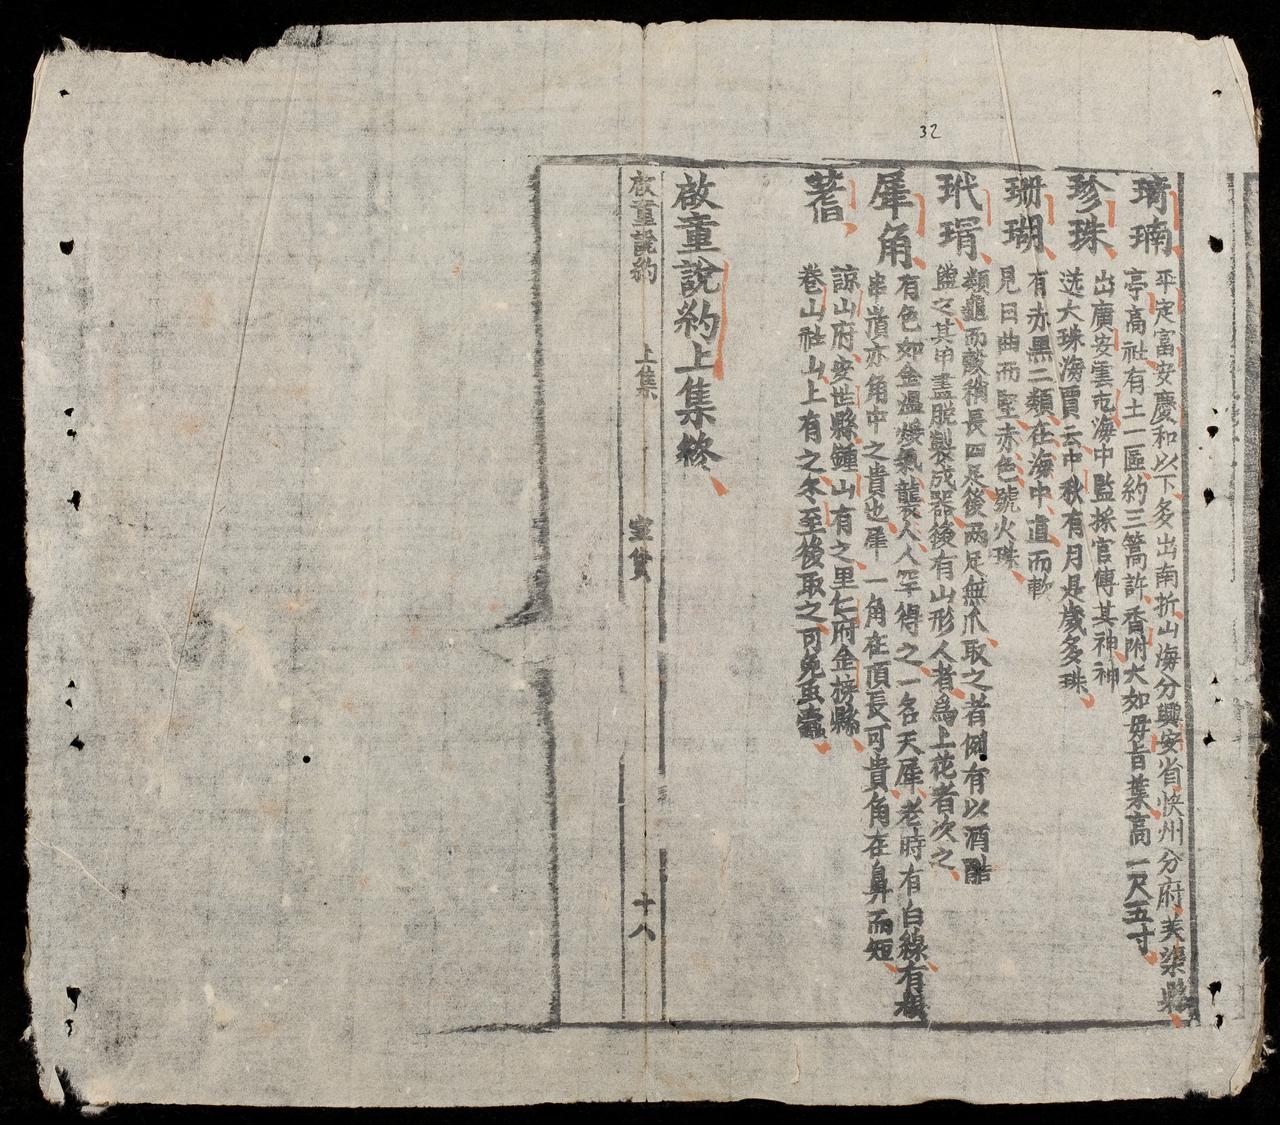 32
琦㻳
平定富安慶和以下多出南折山海分興安省快州分府芙蕖縣
亭高社有土一區約三篙許香附大如毋旨葉高一尺五寸
珍珠
出廣安雲屯海中監採官傅其神神
送大珠海賈云中秋有月是歲多珠
珊瑚
有赤黑二類在海中直而軟
見日曲而堅赤色號火珠
玳瑁
類龜而殼稍長四足後兩足無爪取之者倒有以酒醋
盥之其甲盡脫製成器後有山形人者爲上花者次之
犀角
有色如金溫煖氣襲人人罕得之一名天犀老時有白線有
串嵿亦角中之貴也犀一角在頂長可貴角在鼻而短
蓍
諒山府安世縣鍾山有之里仁府金榜縣
卷山社山上有之冬至後取之可免虫蠹
啟童說約上集終
啟童說約
上集
宝貨
十八